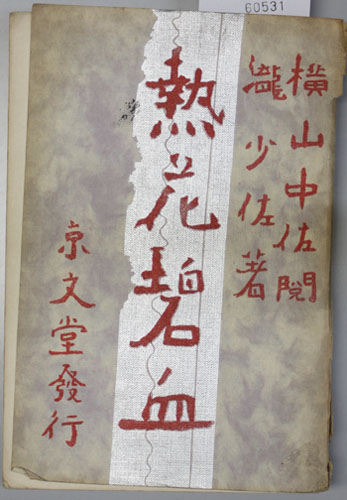 60531
横山中佐閲
瀧少佐著
熱花碧血
京文堂發行